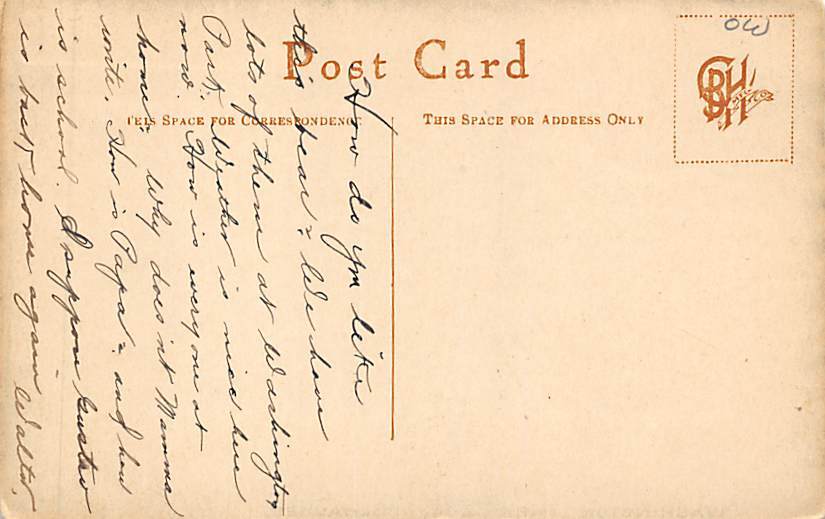 Post Card
THIS SPACE FOR CORRESPONDENCE
THIS SPACE FOR ADDRESS ONLY
How do you like
this bear? We have
lots of them at Washington
Park. Weather is nice here
now. How is everyone at
home? Why does'nt Mamma
write. How is Papa? and how
is school. I suppose Gustav
is back home again Walter.